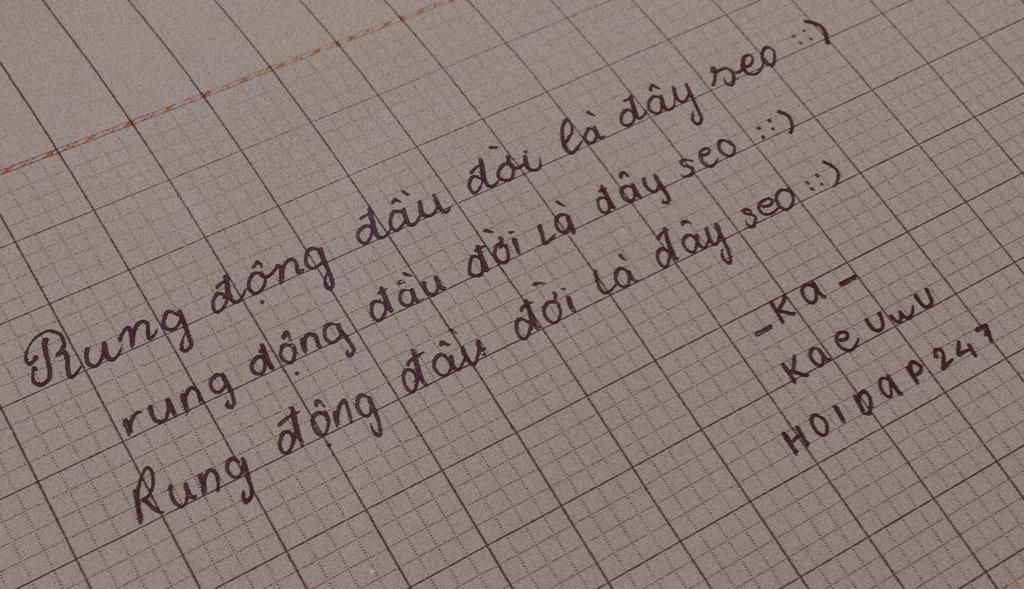 Rung động đầu đời là đây seo ::)
rung động đầu đời là đây seo :::)
Rung động đầu đời là đây seo ::)
-Ka-
Kae UwU
HOIDAP247